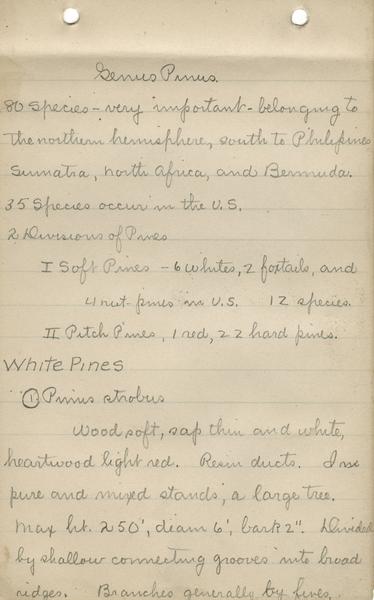 Genus Pinus.
80 Species - very important - belonging to
the northern hemisphere, south to Philipines
Sumatra, north Africa, and Bermuda.
35 Species occur in the U.S.
2 Divisions of Pines
I Soft Pines - 6 whites, 2 foxtails, and
4 nut-pines in U.S. 12 species.
II Pitch Pines, 1 red, 22 hard pines.
White Pines
① Pinus strobus
Wood soft, sap thin and white,
heartwood light red. Resin ducts. In
pure and mixed stands, a large tree.
Max ht. 250', diam 6', bark 2". Divided
by shallow connecting grooves into broad
ridges. Branches generally by fives.